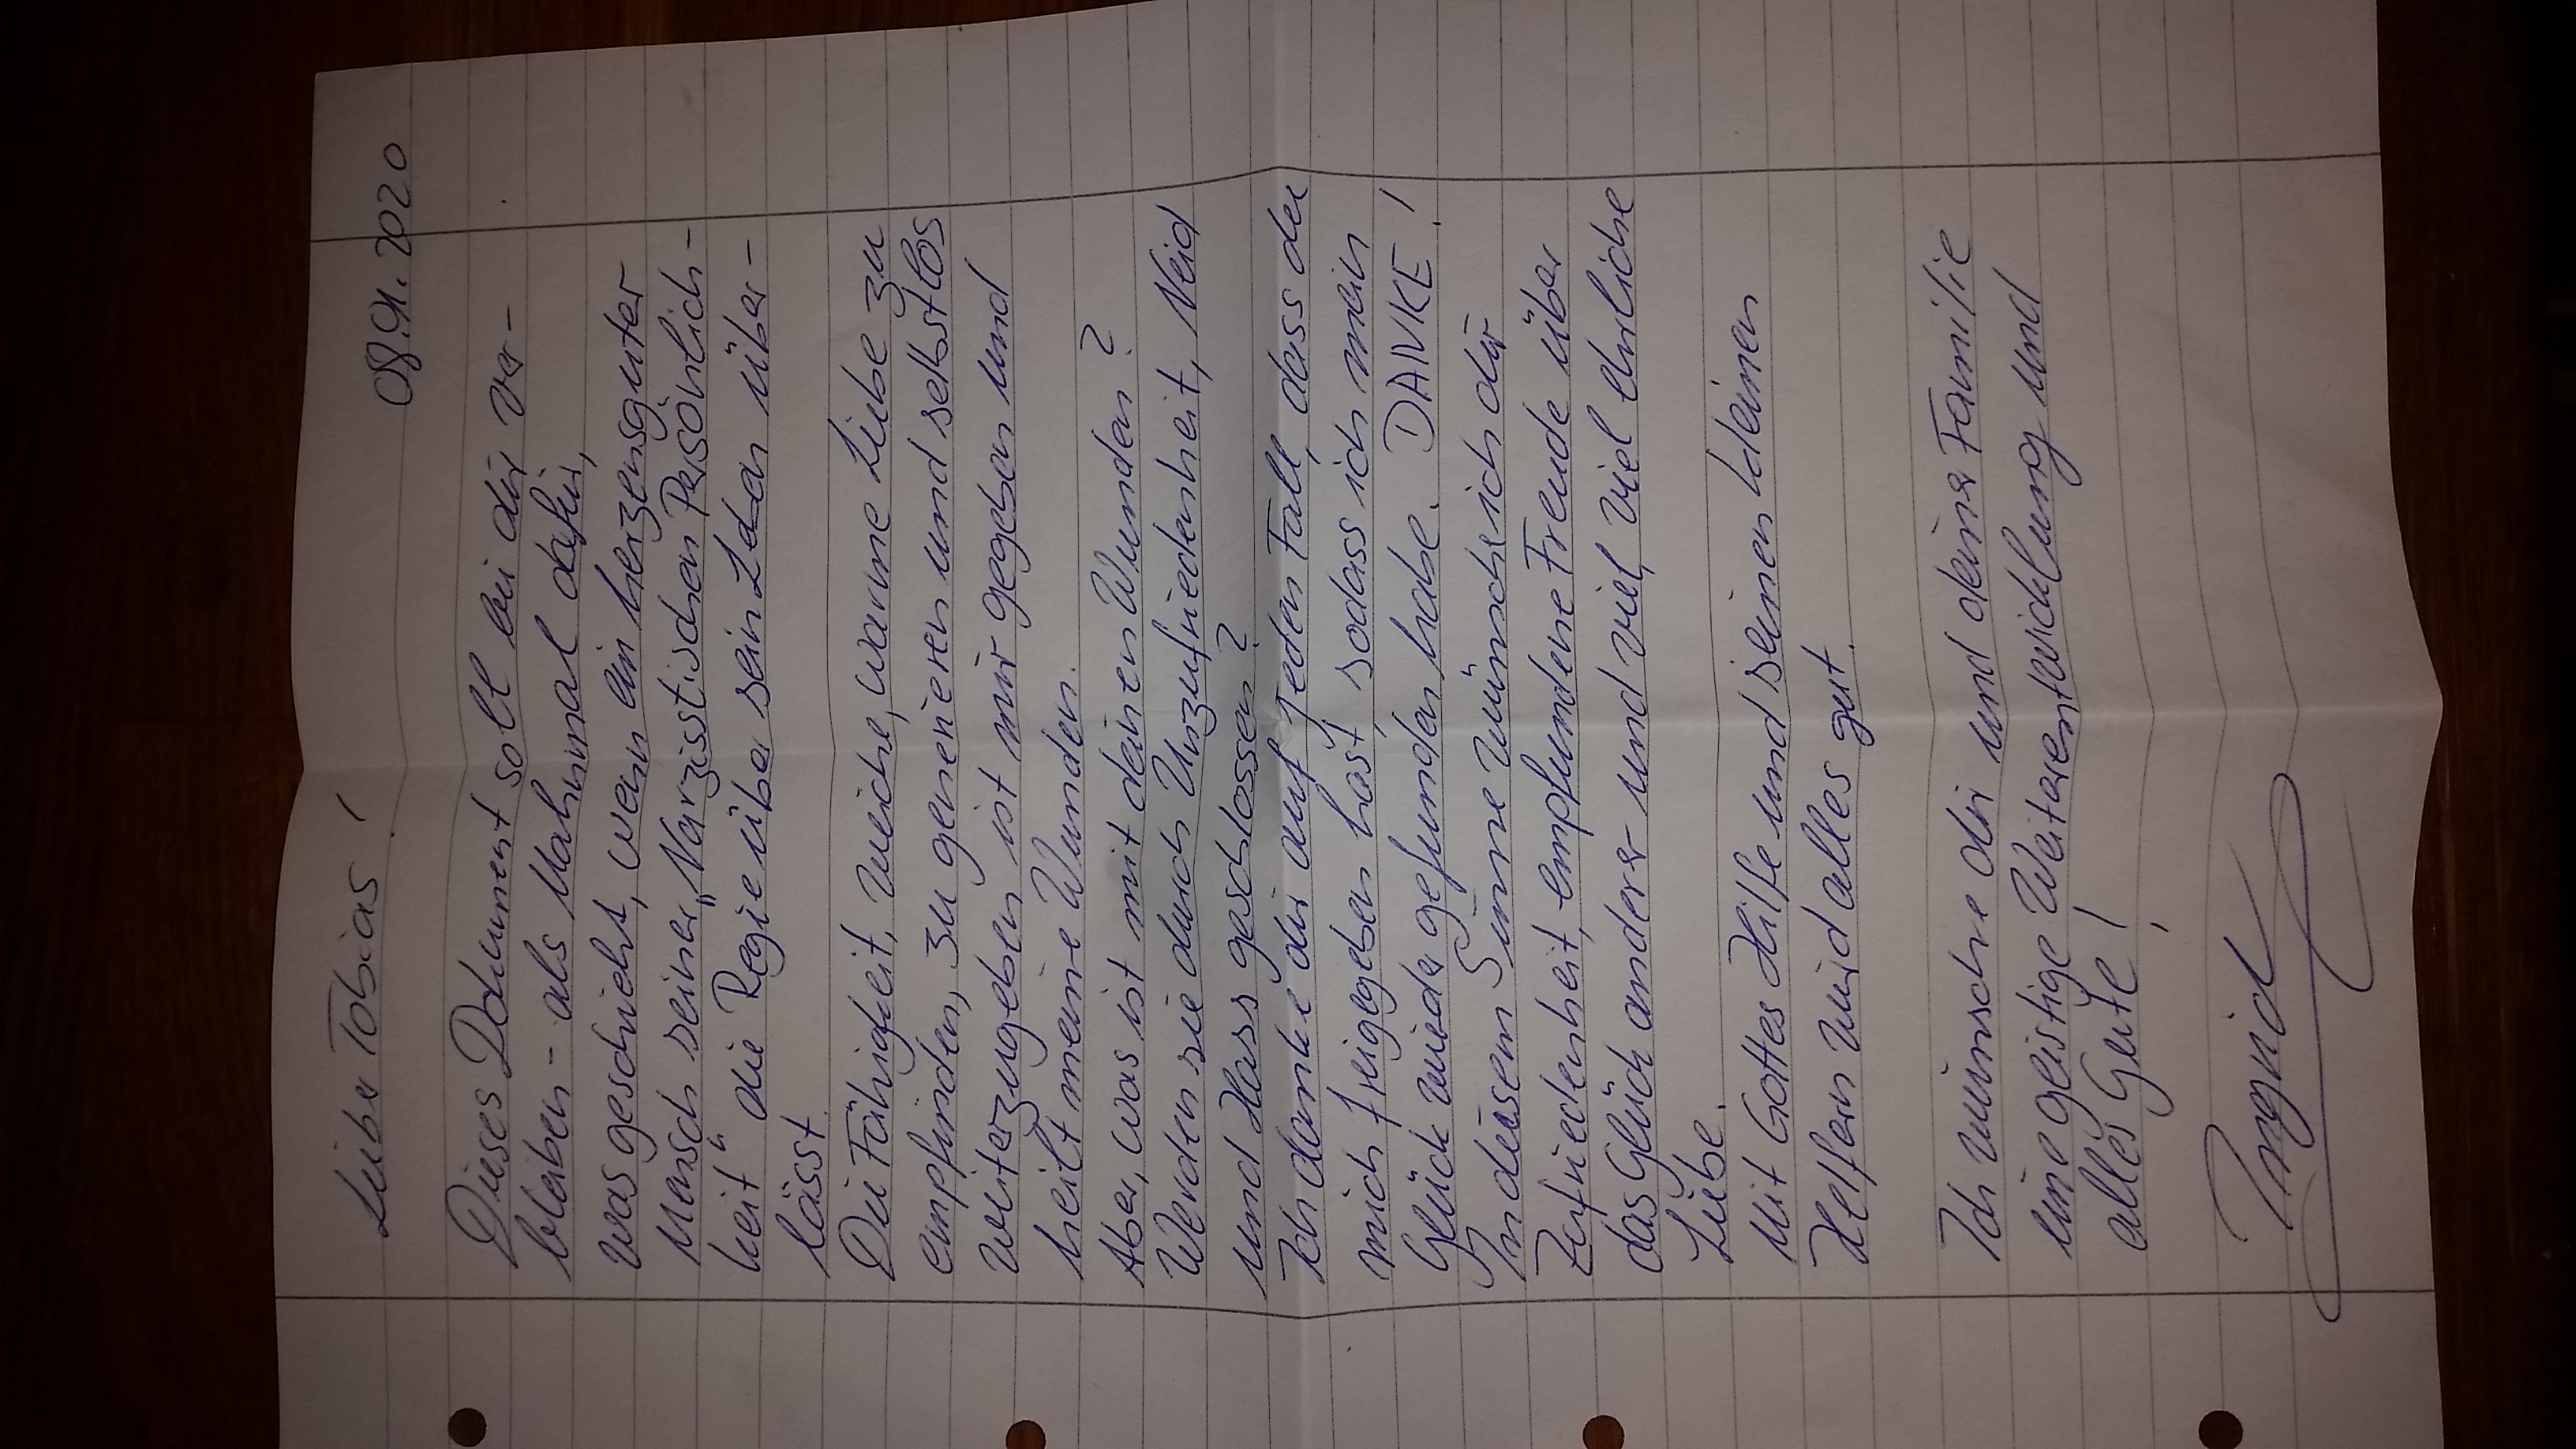 08.01.2020
Lieber Tobias!
Dieses Dokument soll bei dir ver-
bleiben - als Mahnmal dafür,
was geschieht, wenn ein herzensguter
Mensch seiner „Narzisstischen Persönlich-
keit" die Regie über sein Leben über-
lässt.
Die Fähigkeit, weiche, warme Liebe zu
empfinden, zu generieren und selbstlos
weiterzugeben ist mir gegeben und
heilt meine Wunden.
Aber, was ist mit deinen Wunden?
Werden sie durch Unzufriedenheit, Neid
und Hass geschlossen?
Ich danke dir auf jeden Fall, dass du
mich freigegeben hast, sodass ich mein
Glück wieder gefunden habe. DANKE!
In diesem Sinne wünsche ich dir
Zufriedenheit, empfundene Freude über
das Glück anderer und viel, viel viel ehrliche
Liebe.
Mit Gottes Hilfe und seinen kleinen
Helfern wird alles gut.
Ich wünsche dir und deiner Familie
eine geistige Weiterentwicklung und
alles Gute!
Ingrid